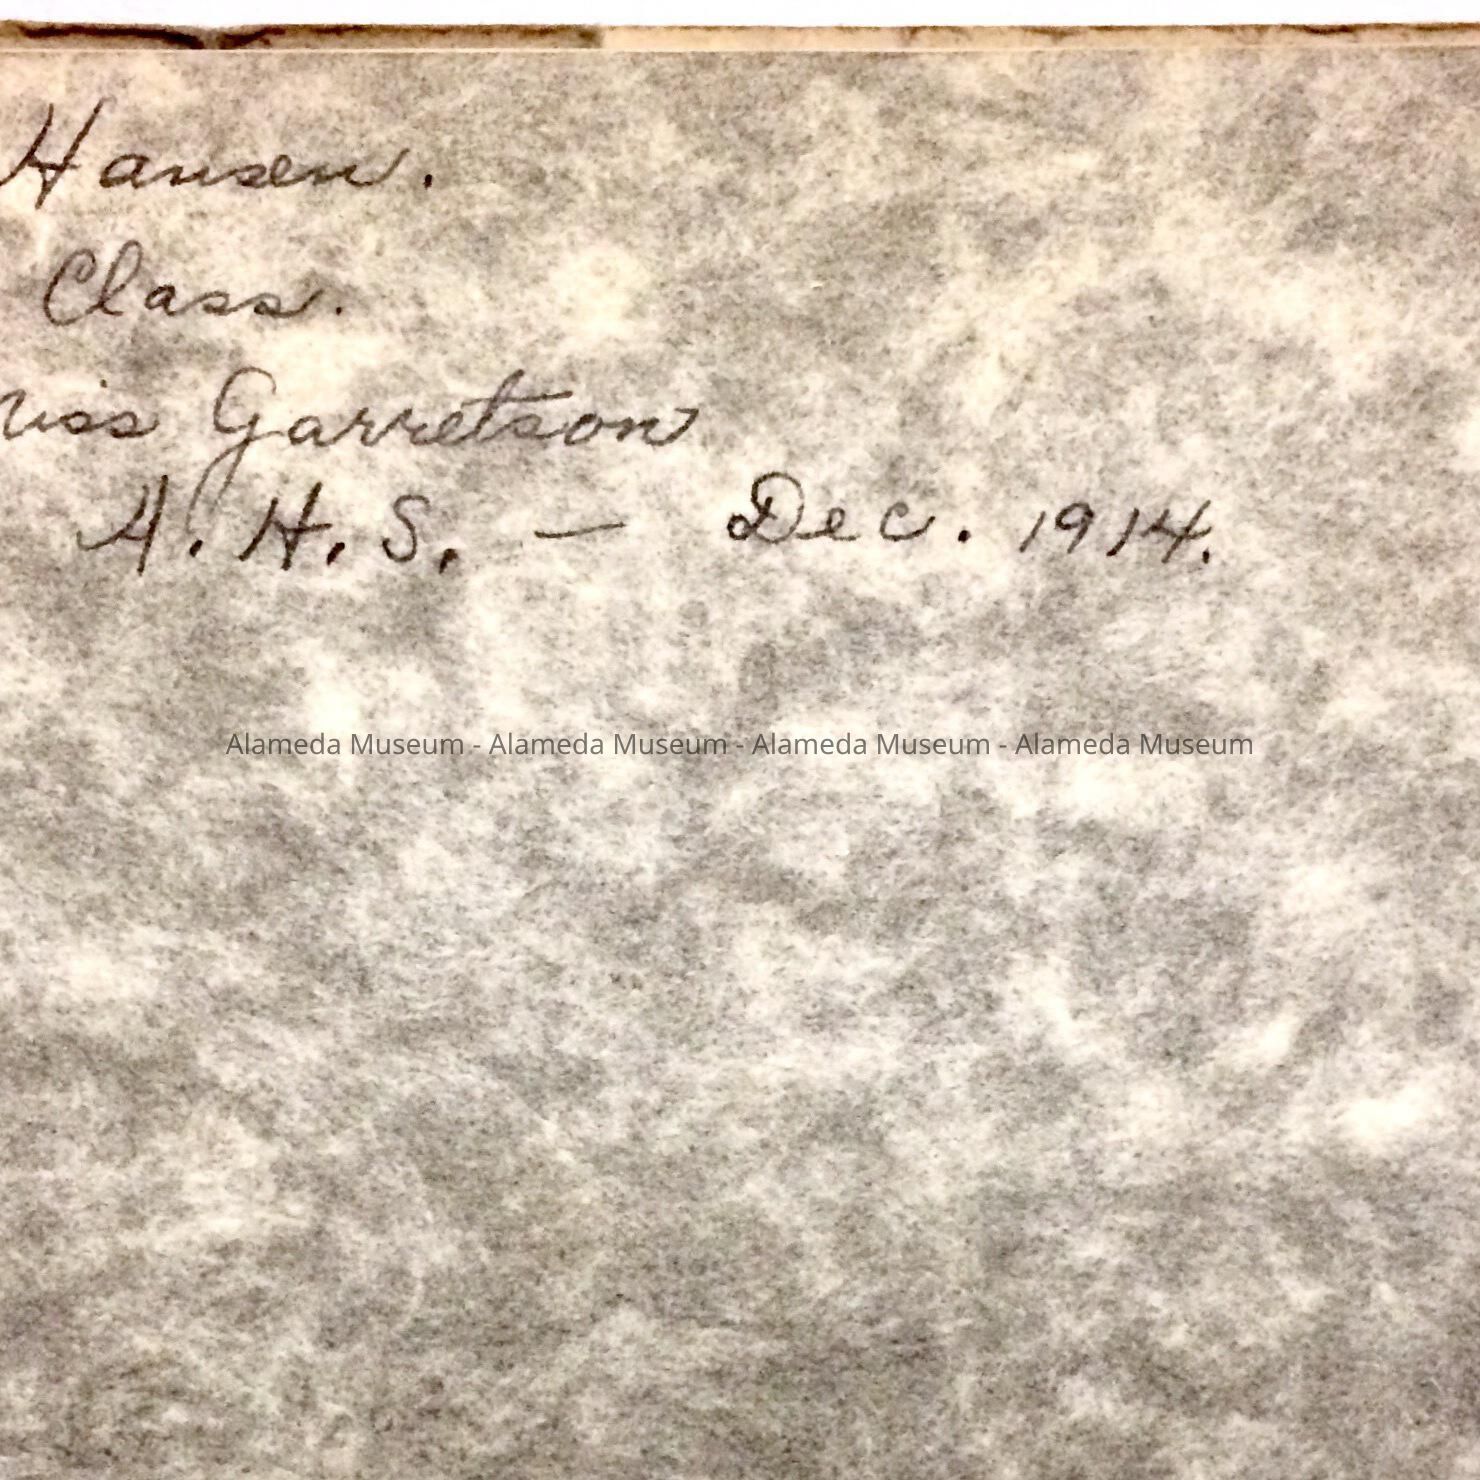 Hansen.
Class.
Miss Garretson
A. H. S. — Dec. 1914.
Alameda Museum - Alameda Museum - Alameda Museum - Alameda Museum